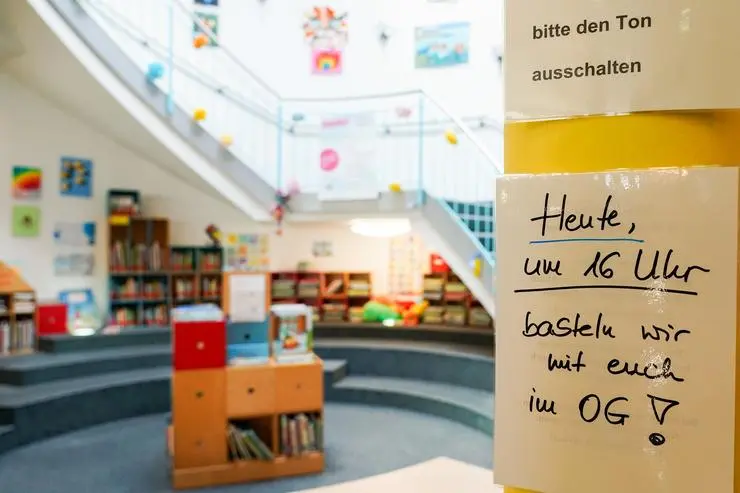 bitte den Ton
ausschalten
Heute,
um 16 Uhr
basteln wir
mit euch
im OG!